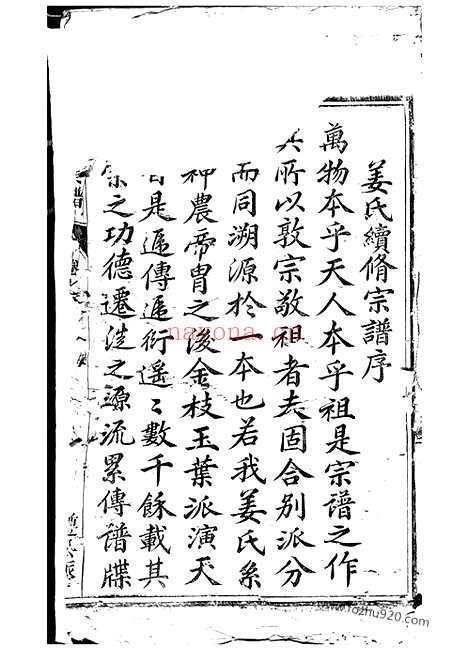 姜氏續脩宗譜序
萬物本乎天人本乎祖是宗譜之作
所以敦宗敬祖者去固合别派分
而同溯源於一本也若我姜氏系
神農帝胄之後金枝玉葉派演天
是遞傳遞衍遥〻數千餘載其
之功德遷徙之源流累傳譜牒
nayona.cn
www.fozhu920.com